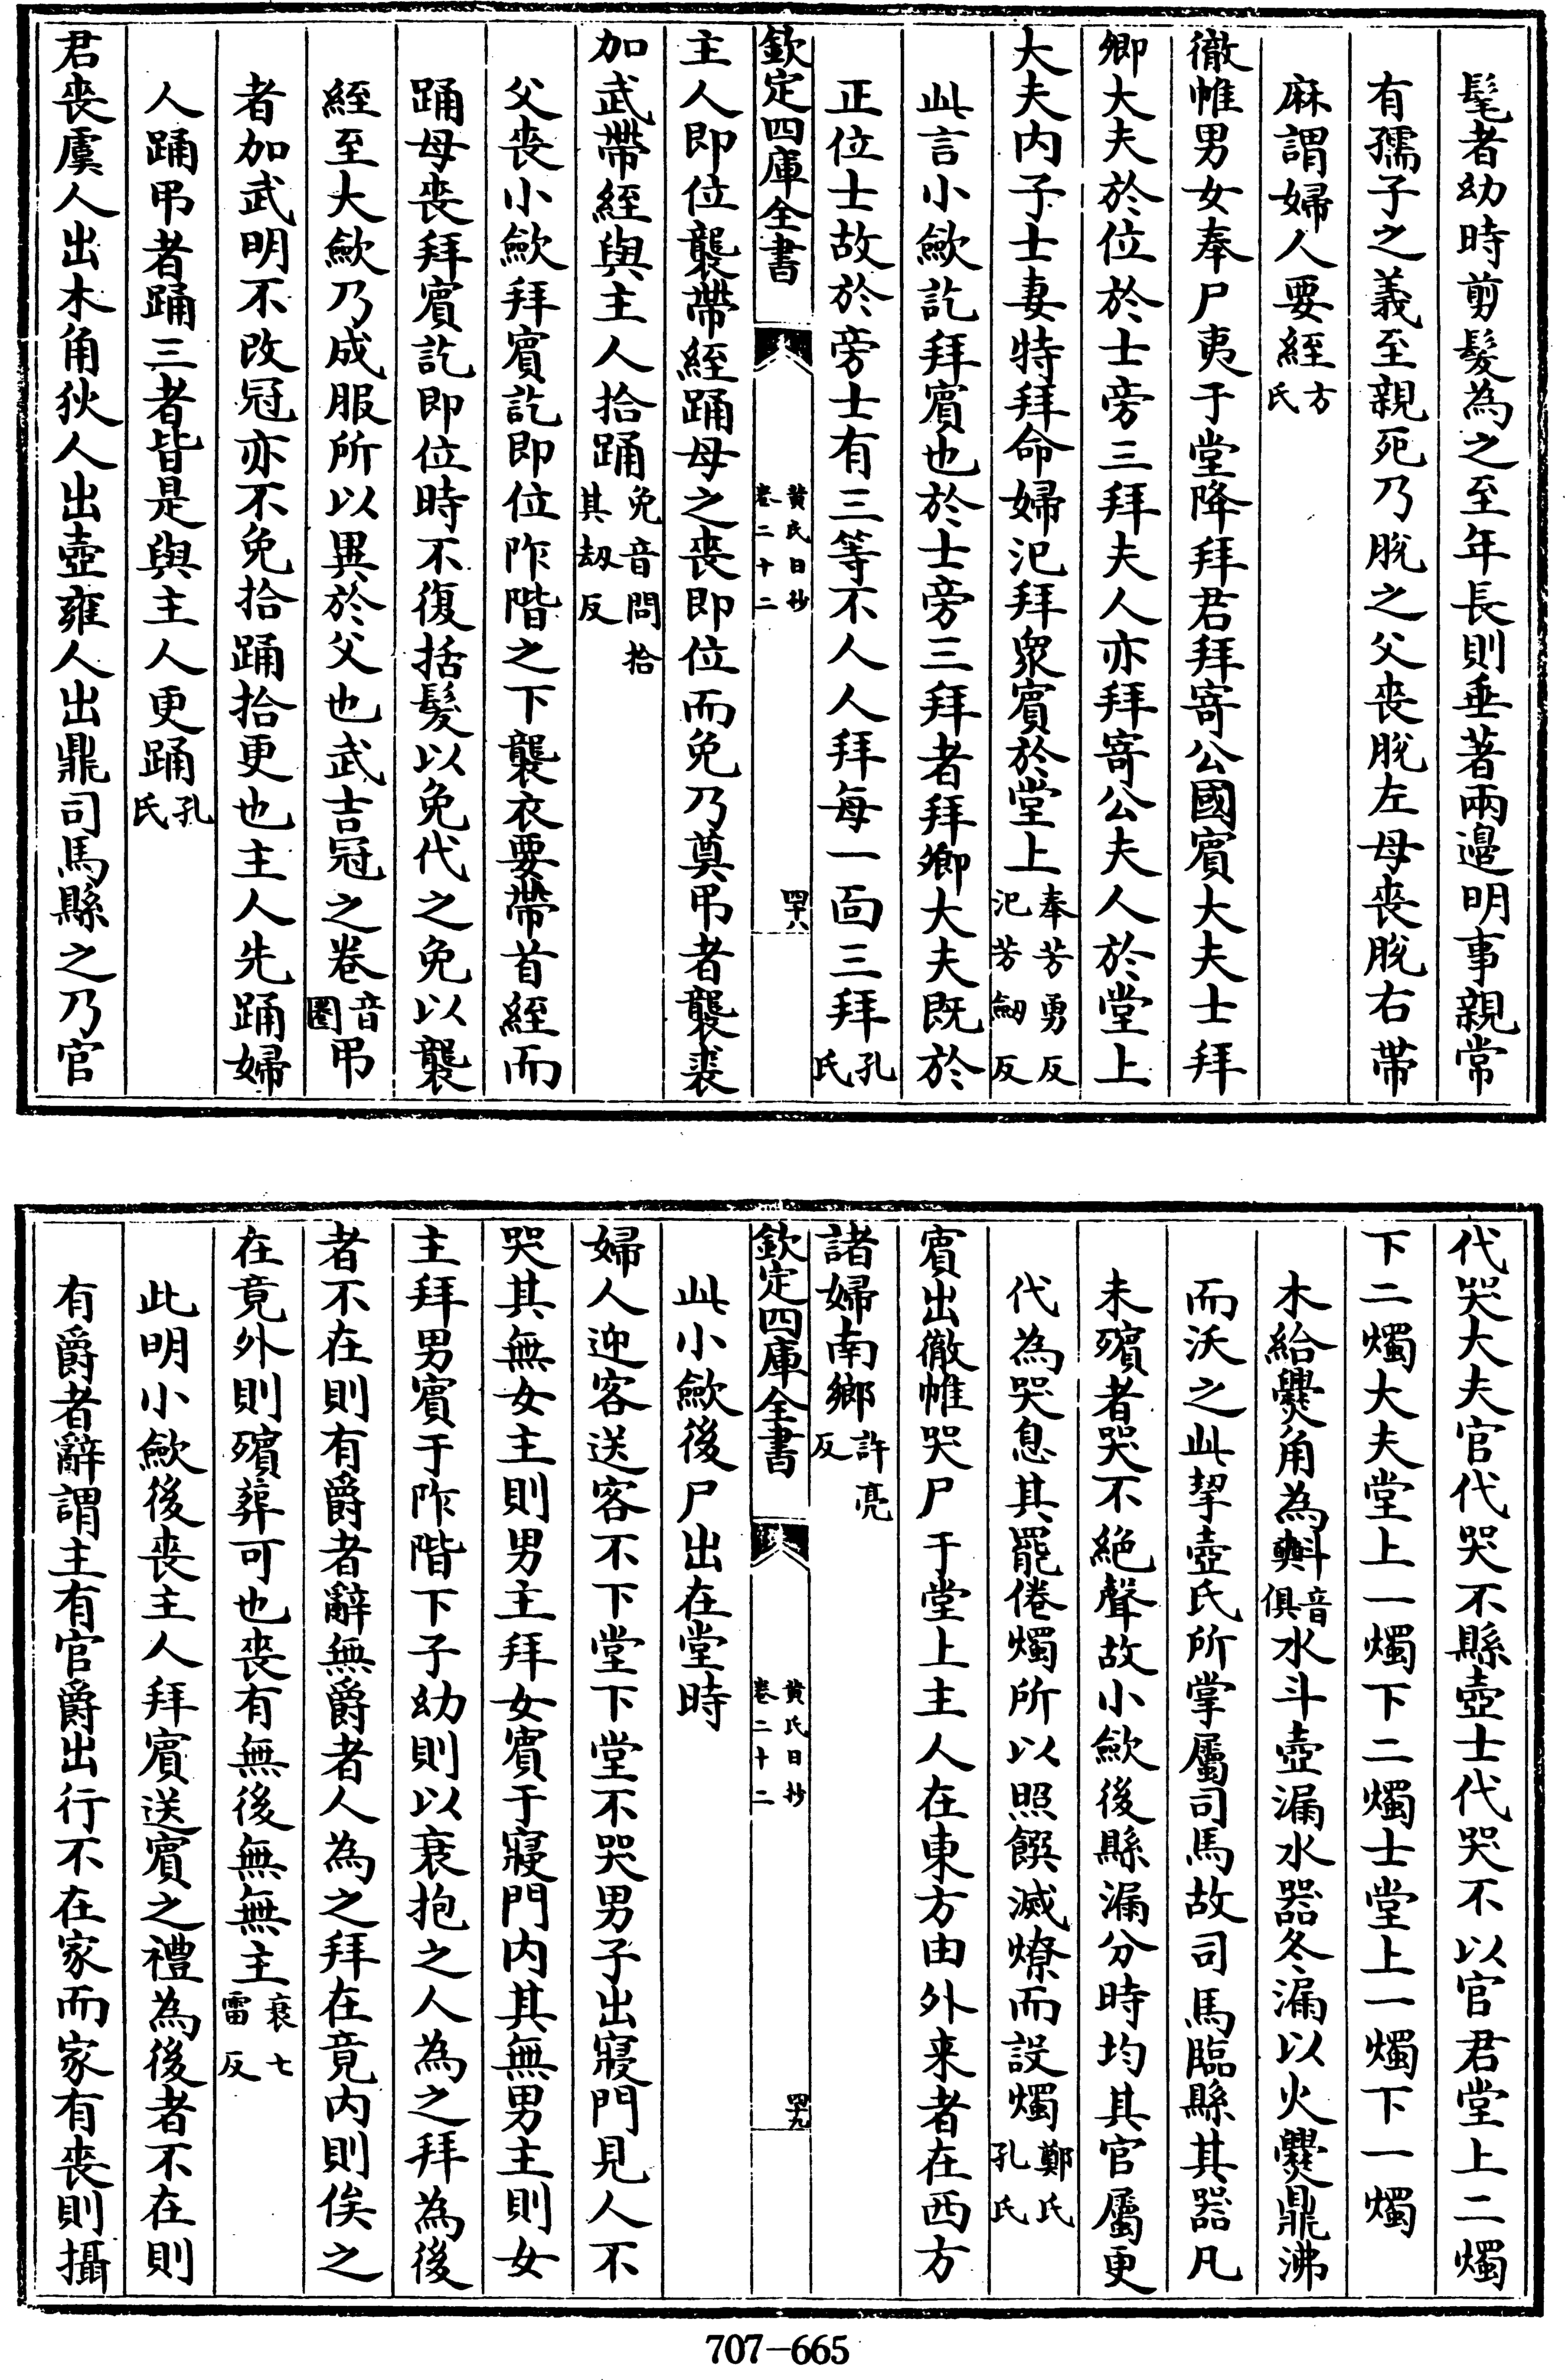 髦者幼時剪髮為之至年長則垂著兩邉明事親常
有孺子之義至親死乃脫之父喪脫左母喪脫右帶
麻謂婦人要絰方氏
徹帷男女奉尸夷于堂降拜君拜寄公國賓大夫士拜
卿大夫於位於士旁三拜夫人亦拜寄公夫人於堂上
大夫内子士妻特拜命婦氾拜衆賓於堂上奉芳勇反氾芳劒反
此言小歛訖拜賓也於士旁三拜者拜卿大夫既於
正位士故於旁士有三等不人人拜每一面三拜孔氏
欽定四庫全書 黄氏日抄卷二十二 四十八
主人即位襲帶絰踊母之喪即位而免乃奠弔者襲裘
加武帶絰與主人拾踊免音問拾其刼反
父喪小歛拜賓訖即位阼階之下襲衣要帶首絰而
踊母喪拜賓訖即位時不復括髮以免代之免以襲
絰至大歛乃成服所以異於父也武吉冠之卷音圈弔
者加武明不改冠亦不免拾踊拾更也主人先踊婦
人踊弔者踊三者皆是與主人更踊孔氏
君喪虞人出木角狄人出壺雍人出鼎司馬縣之乃官
代哭大夫官代哭不縣壺士代哭不以官君堂上二燭
下二燭大夫堂上一燭下二燭士堂上一燭下一燭
木給爨角為㪺音俱水斗壺漏水器冬漏以火爨鼎沸
而沃之此挈壺氏所掌屬司馬故司馬臨縣其器凡
未殯者哭不絶聲故小歛後縣漏分時均其官屬更
代為哭息其罷倦燭所以照饌滅燎而設燭鄭氏孔氏
賓出徹帷哭尸于堂上主人在東方由外来者在西方
諸婦南鄉許亮反
欽定四庫全書 黄氏日抄卷二十二 四十九
此小歛後尸出在堂時
婦人迎客送客不下堂下堂不哭男子出寢門見人不
哭其無女主則男主拜女賓于寢門内其無男主則女
主拜男賓于阼階下子幼則以衰抱之人為之拜為後
者不在則有爵者辭無爵者人為之拜在竟内則俟之
在竟外則殯葬可也喪有無後無無主衰七雷反
此明小歛後喪主人拜賓送賓之禮為後者不在則
有爵者辭謂主有官爵出行不在家而家有喪則攝
707－665